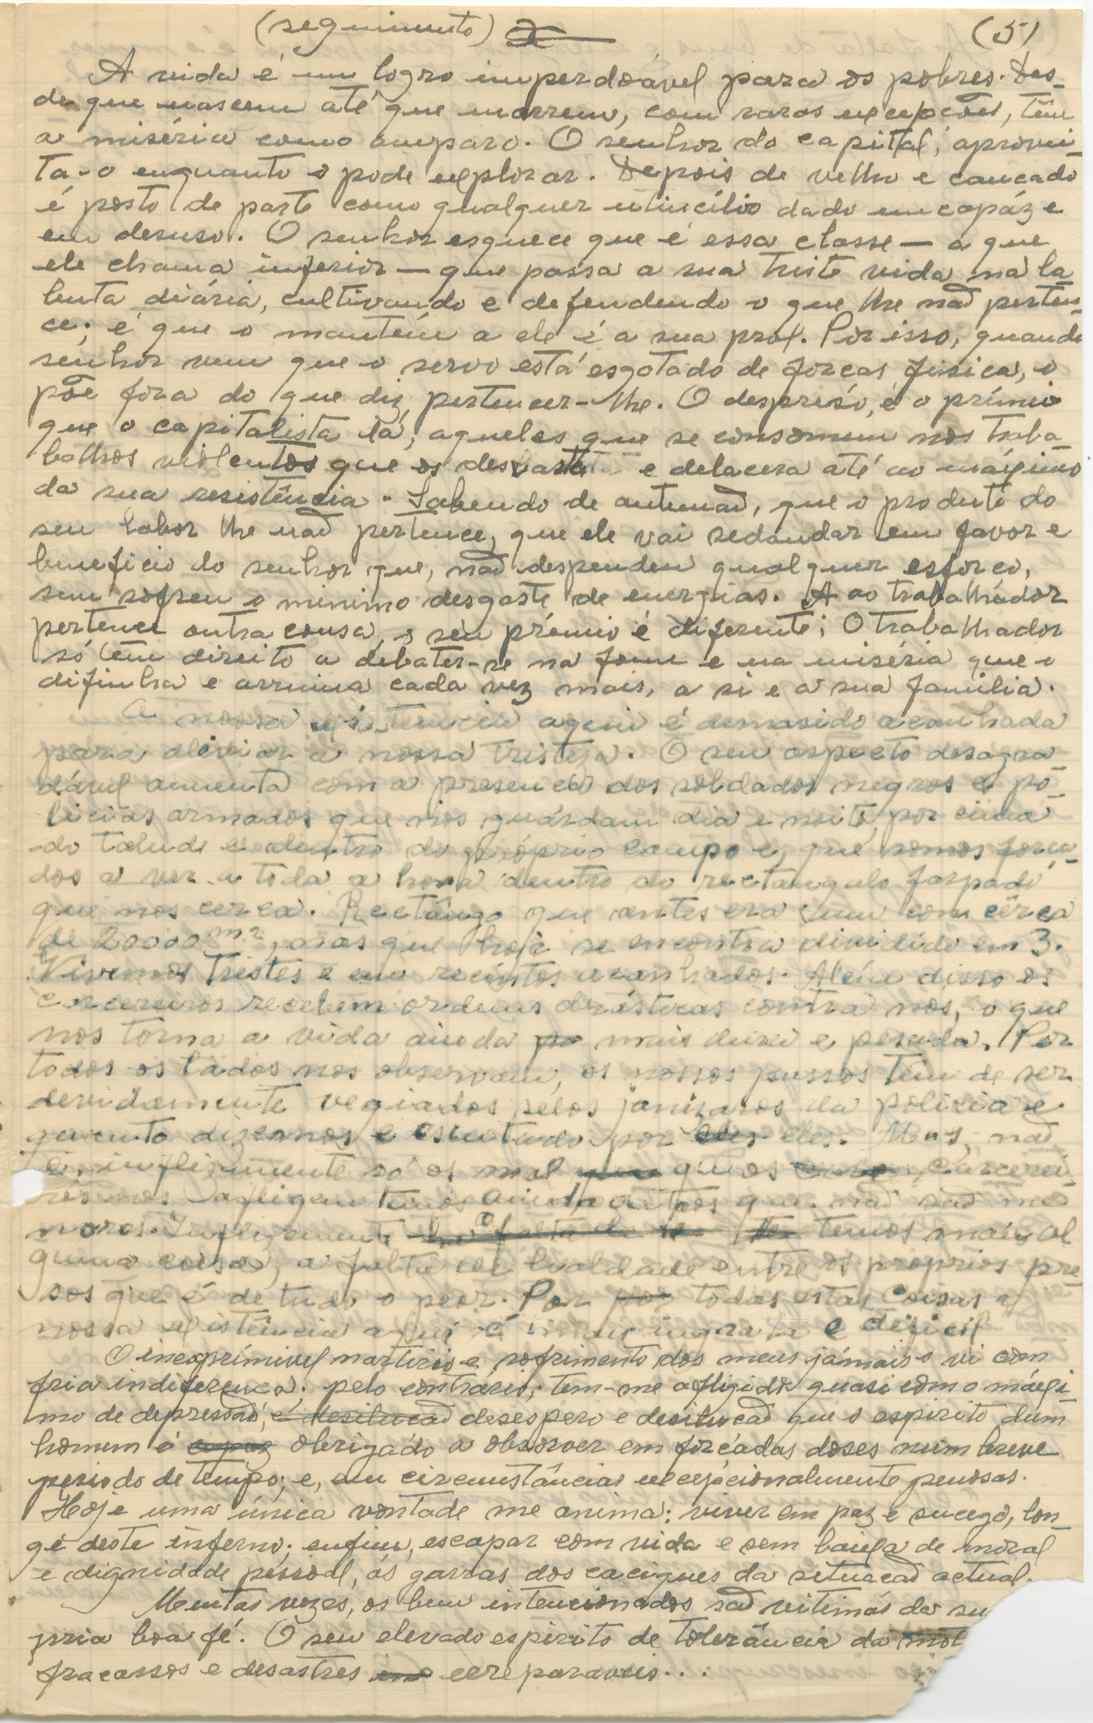 (seguimento)
(5)
A vida é um logro imperdoável para os pobres. Des-
de que nascem até que morrem, com raras excepções, têm
a miséria como amparo. O senhor do capital, aprovei-
ta-o enquanto o pode explorar. Depois de velho e cançado
é posto de parte como qualquer utincílio dado incapáz e
em desuso. O senhor esquece que é essa classe — a que
ele chama inferior — que passa a sua triste vida na la
buta diária, cultivando e defendendo o que lhe não perten-
ce; é que o mantém a ele e a sua prol. Por isso, quando
senhor vem que o servo está esgotado de forças fisica, o
põe fora do que diz pertencer-lhe. O despreso, é o prémio
que o capitalista dá, aqueles que se consomem nos traba-
balhos violentos que os desvasta e delacera até ao máximo
da sua resistência. Sabendo de antemão, que o produto do
seu labor lhe não pertence, que ele vai redundar em favor e
beneficio do senhor que, não despendeu qualquer esforço,
sem sofreu o menimo desgaste de energias. A ao trabalhador
pertence outra cousa, o seu prémio é diferente; O trabalhador
só têm direito a debater-se na fome e na miséria que o
difinha e arruina cada vez mais, a si e a sua familia.
A nossa existencia aqui é demasido acanhada
para aliviar a nossa tristeza. O seu aspecto desagra-
dável aumenta com a presença dos soldados negros e po-
licias armados que nos guardam dia e noite, por cima
do talude e dentro do próprio campo e, que somos força-
dos a ver a toda a hora dentro do rectangulo farpado
que nos cerca. Rectângo que antes era um com cêrca
de 20000 m2, mas que hoje se encontra dividido em 3.
Vivemos tristes e em recintos acanhados. Além disso os
carcereiros recebem ordens drásticas contra nós, o que
nos torna a vida ainda mais dura e pesada. Por
todos os lados nos observam, os nossos passos têm de ser
devidamente vegiados pelos janizaros da policia e
quanto dizemos e escutado por eles. Mas, não
é, infelizmente só os mal que os carcerei-
ros nos afligem temos ainda outros que não são me
nores. Infelizmente temos mais al
guma coisa, a falta de lealdade entre os próprios pre
sos que é de tudo o peor. Por todas estas coisas a
nossa existência aqui é mais ingrata e dificil
O inexprimivel martirio e sofrimento dos meus jámais o vi com
fria indiferença. pelo contrário, tem-me afligido quasi como o máxi-
mo de depressão, desespero e desilução que o espirito dum
homem é obrigado a observer em forçadas doses num breve
periodo de tempo; e, em circunstâncias excepcionalmente penosas.
Hoje uma única vontade me anima: viver em paz e sucego, lon-
ge deste inferno; enfim, escapar com vida e sem baixa de moral
e dignidade pessoal, ás garras dos caciques da situação actual.
Muitas vezes, os bem intencionados são vitimas da su
pria boa fé. O seu elevado espirito de tolerância da
fracassos e desastres